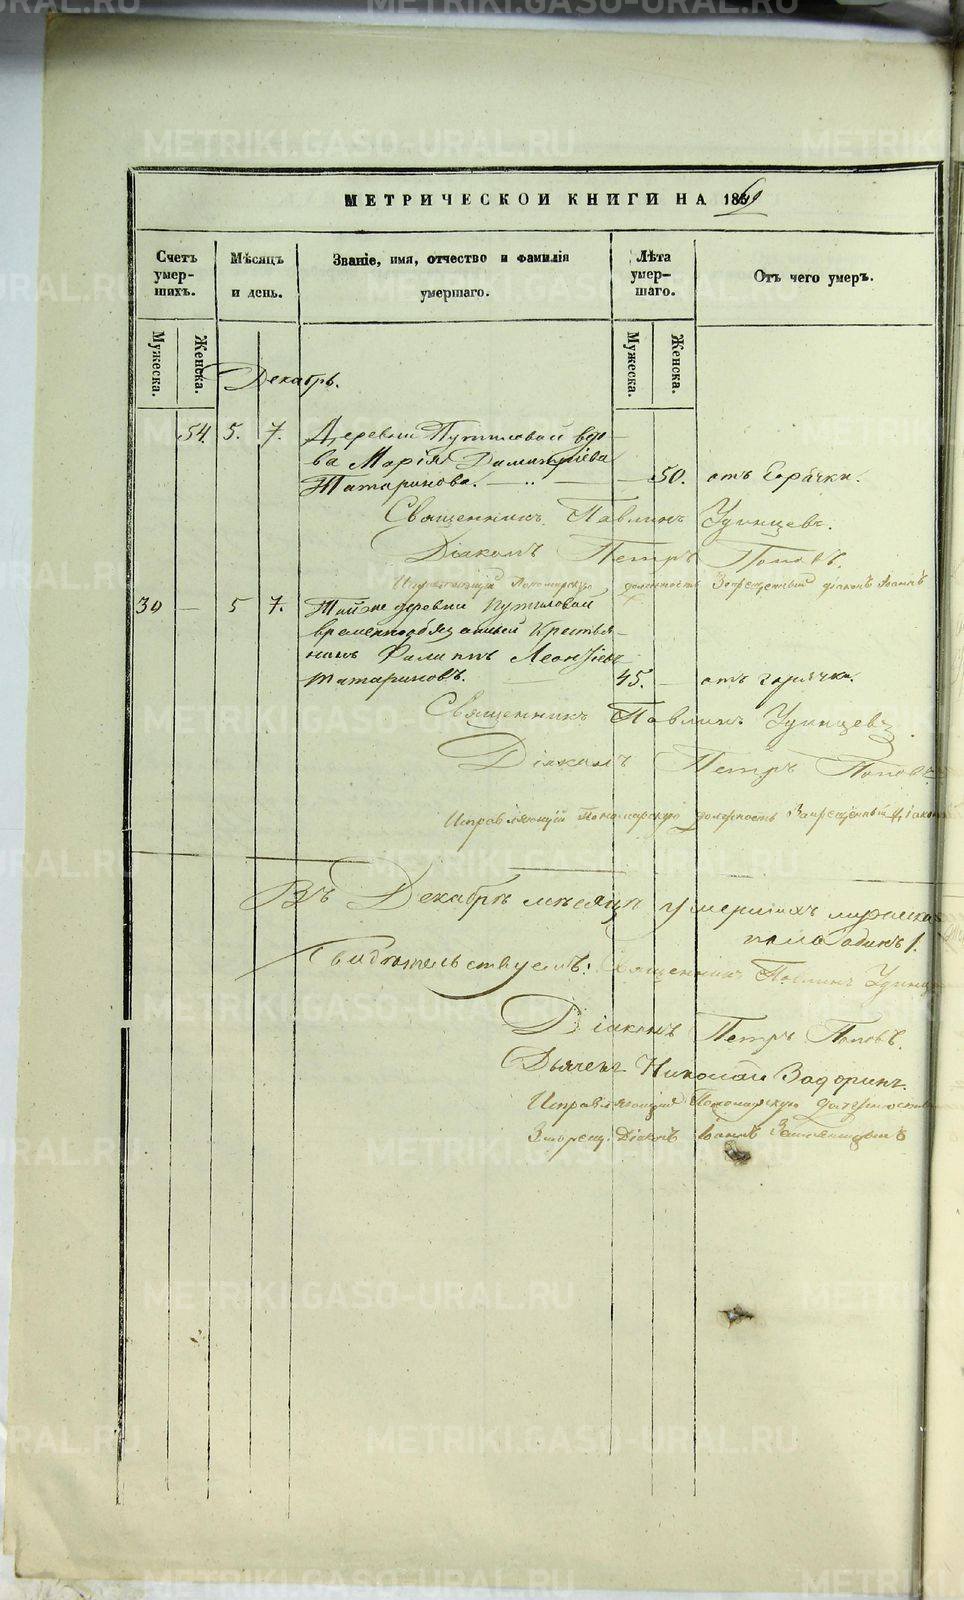 МЕТРИЧЕСКОЙ КНИГИ НА 1869
Счетъ умер-шихъ.
Мѣсяцъ и день.
Званіе, имя, отчество и фамилія умершаго.
Лѣта умер-шаго.
Отъ чего умеръ.
Мужеска.
Женска.
Мужеска.
Женска.
Декабрь.
54. 5. 7. Деревни Путиловой вдо-
ва Марія Димитріева
Татаринова. 50. отъ Горячки.
Священникъ Павлинъ Удинцевъ.
Діаконъ Петръ Поповъ.
Исправляющій Пономарскую должность Запрещенный діаконъ Іоаннъ
30 — 5 7. Той же деревни Путиловой
временнообязанный Крестья-
нинъ Филиппъ Леонтіевъ
Татариновъ. 45. — отъ горячки.
Священникъ Павлинъ Удинцевъ.
Діаконъ Петръ Поповъ
Исправляющій Пономарскую должность Запрещенный Діаконъ
Въ Декабрѣ мѣсяцѣ умершихъ мужеска
пола одинъ 1.
Свидѣтельствуемъ: Священникъ Павлинъ Удинц
Діаконъ Петръ Поповъ.
Дьячекъ Николай Задоринъ.
Исправляющій Пономарскую должность
Запрещ. Діаконъ Іоаннъ
METRIKI.GASO-URAL.RU